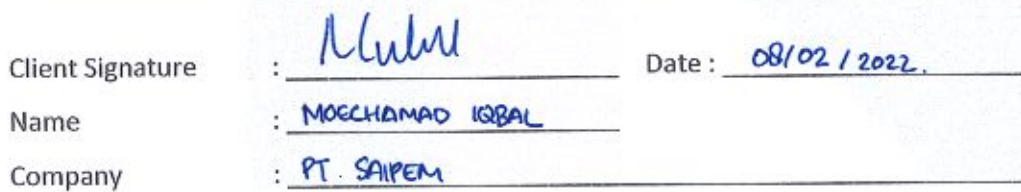 Client Signature : Date : 08/02/2022.
Name : MOECHAMAD IQBAL
Company : PT. SAIPEM